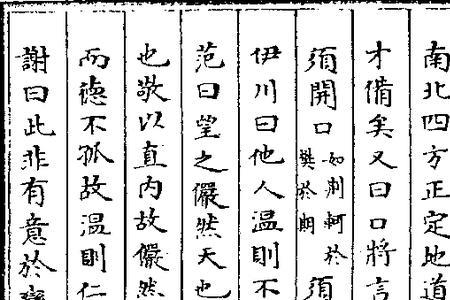 南北四方正定地道
才備矣又曰口將言
須開口如荊軻於樊於期須
伊川曰他人溫則不
范曰望之儼然天也
也敬以直內故儼然
而德不孤故溫則仁
謝曰此非有意於變